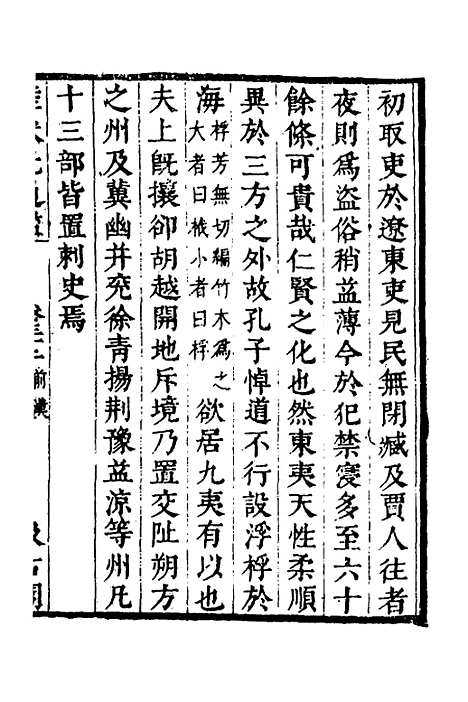 初取吏於遼東吏見民無閉臧及賈人往者
夜則爲盗俗稍益薄今於犯禁寖多至六十
餘條可貴哉仁賢之化也然東夷天性柔順
異於三方之外故孔子悼道不行設浮桴於
海桴芳無切編竹木爲之大者曰栰小者曰桴欲居九夷有以也
夫上旣攘卻胡越開地斥境乃置交阯朔方
之州及冀幽并兖徐青揚荆豫益凉等州凡
十三部皆置刺史焉
前漢